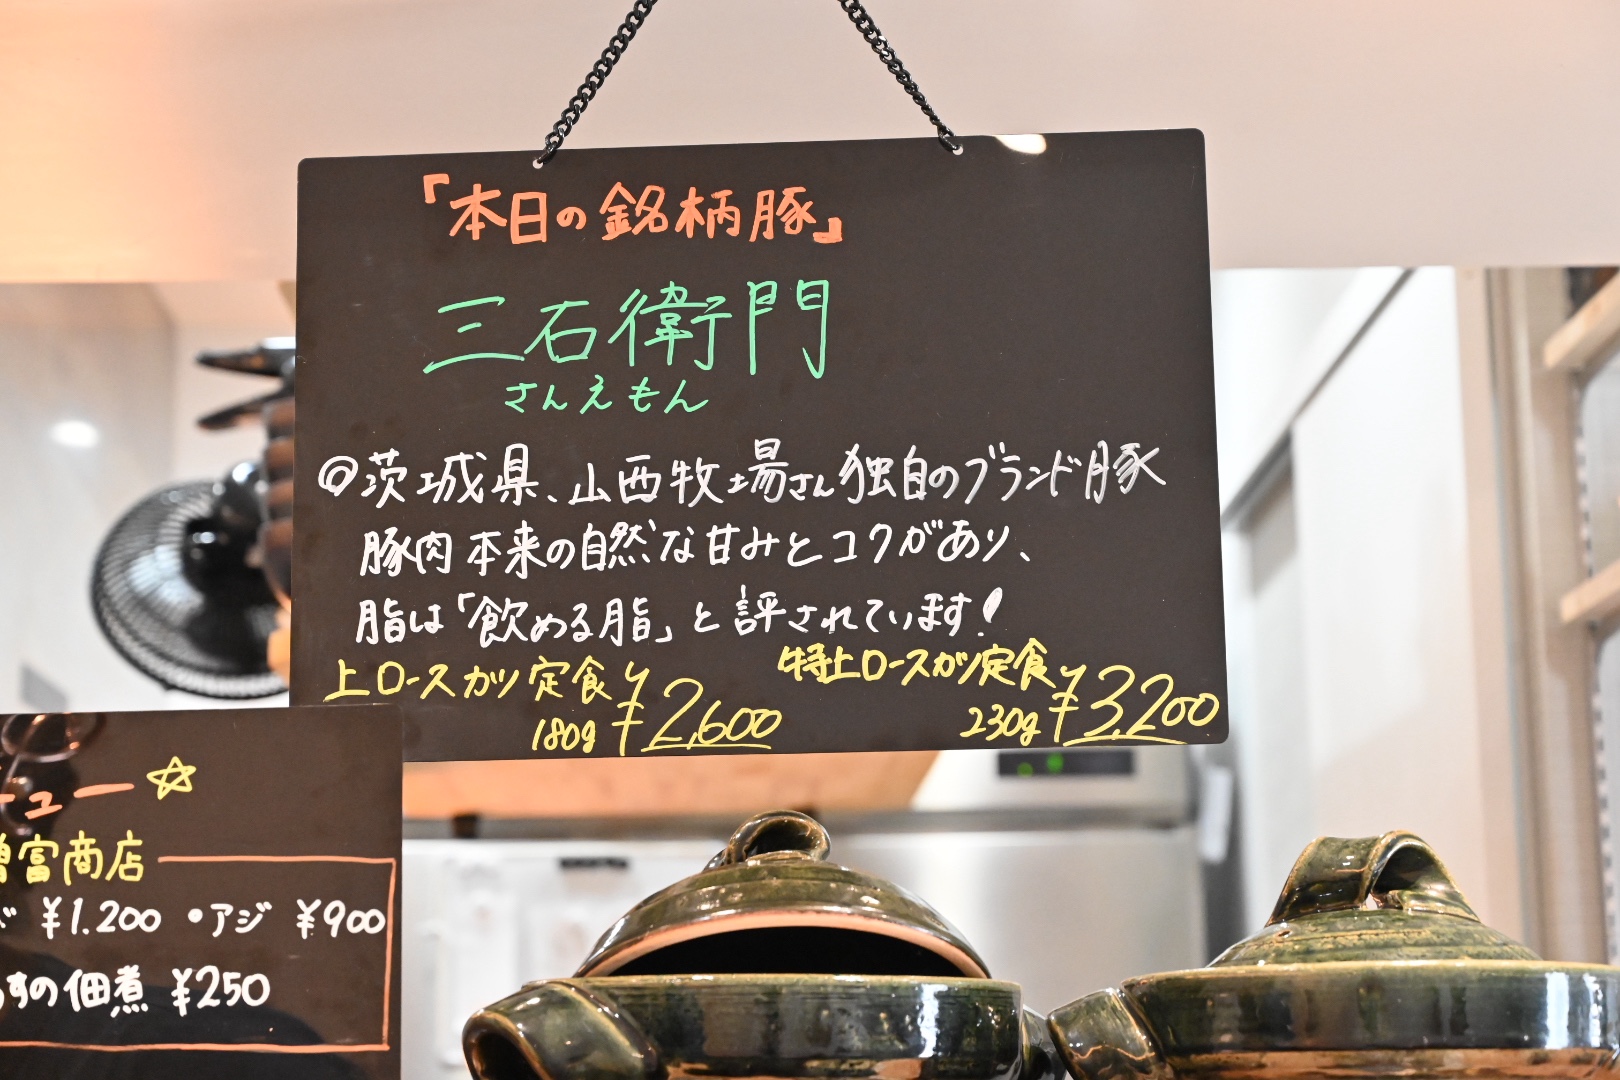 『本日の銘柄豚』
三右衛門
さんえもん
◎茨城県、山西牧場さん独自のブランド豚
豚肉本来の自然な甘みとコクがあり、
脂は「飲める脂」と評されています!
上ロースカツ定食 180g ¥2,600
特上ロースカツ定食 230g ¥3,200
ュー☆
富商店
¥1.200 •アジ ¥900
すの佃煮 ¥250